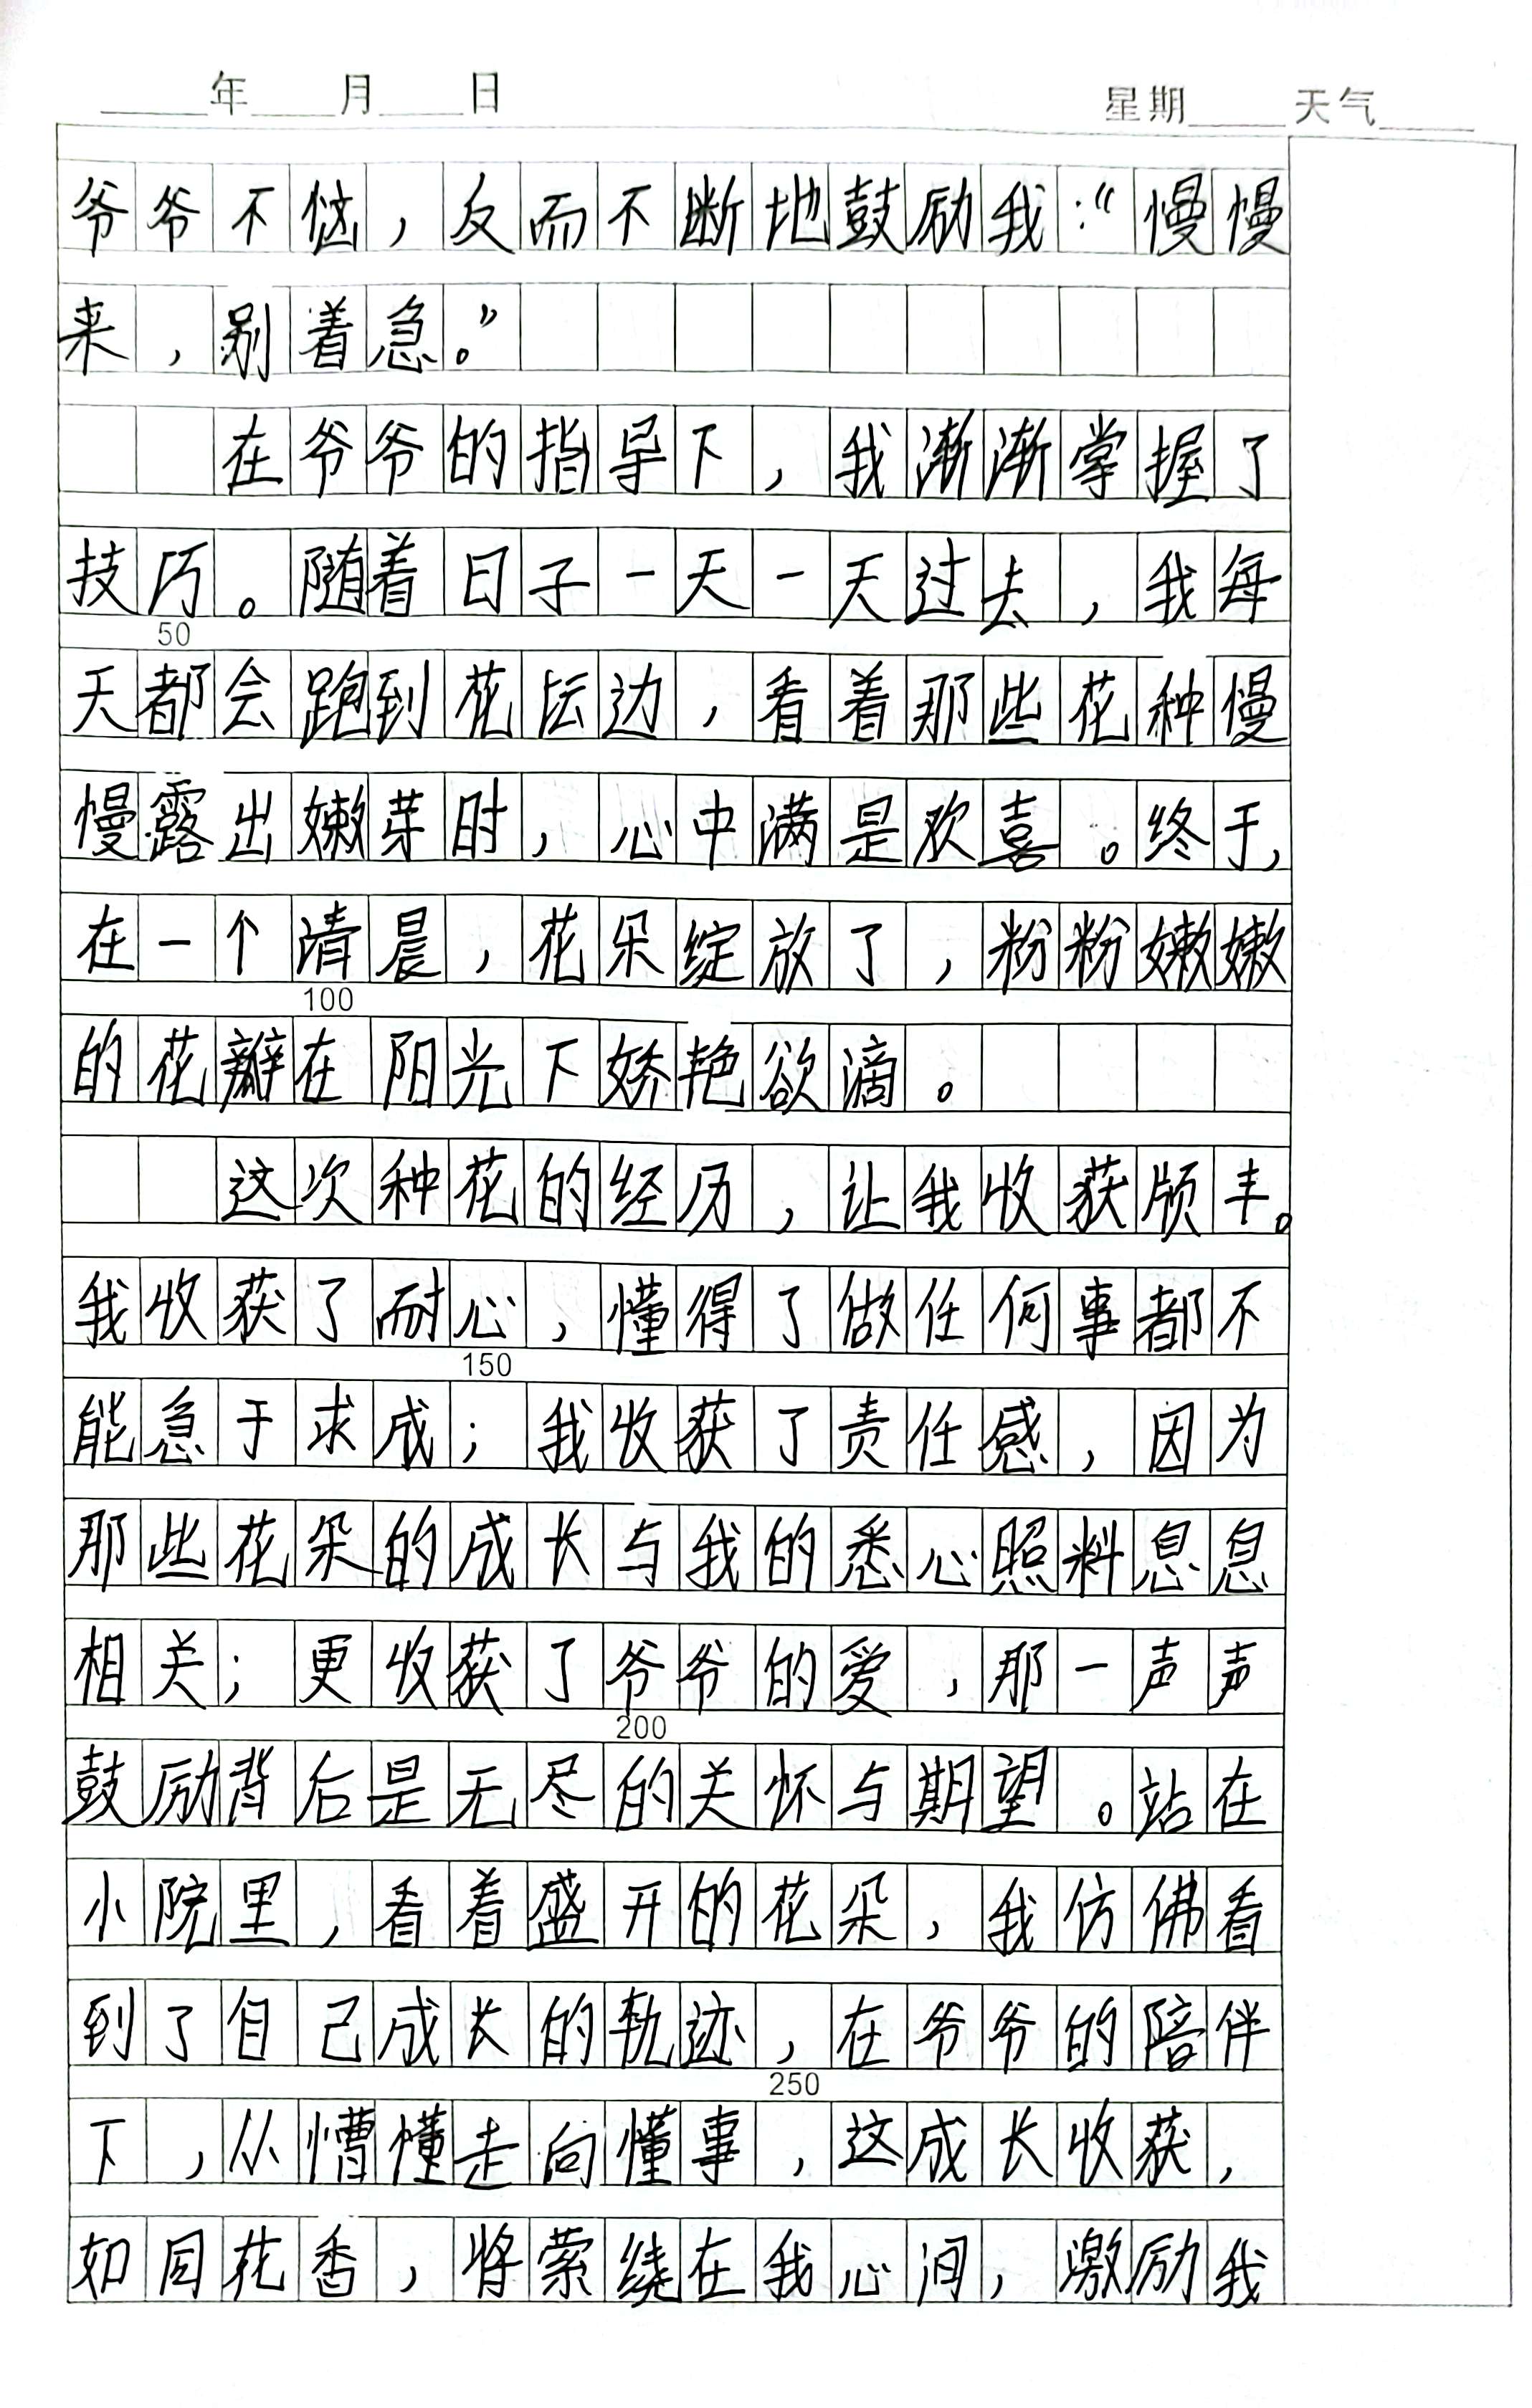 年 月 日 星期 天气
爷爷不恼，反而不断地鼓励我：“慢慢
来，别着急。”
在爷爷的指导下，我渐渐掌握了
技巧。随着日子一天一天过去，我每
50
天都会跑到花坛边，看着那些花种慢
慢露出嫩芽时，心中满是欢喜。终于，
在一个清晨，花朵绽放了，粉粉嫩嫩
100
的花瓣在阳光下娇艳欲滴。
这次种花的经历，让我收获颇丰。
我收获了耐心，懂得了做任何事都不
150
能急于求成；我收获了责任感，因为
那些花朵的成长与我的悉心照料息息
相关；更收获了爷爷的爱，那一声声
200
鼓励背后是无尽的关怀与期望。站在
小院里，看着盛开的花朵，我仿佛看
到了自己成长的轨迹，在爷爷的陪伴
250
下，从懵懂走向懂事，这成长收获，
如同花香，将萦绕在我心间，激励我